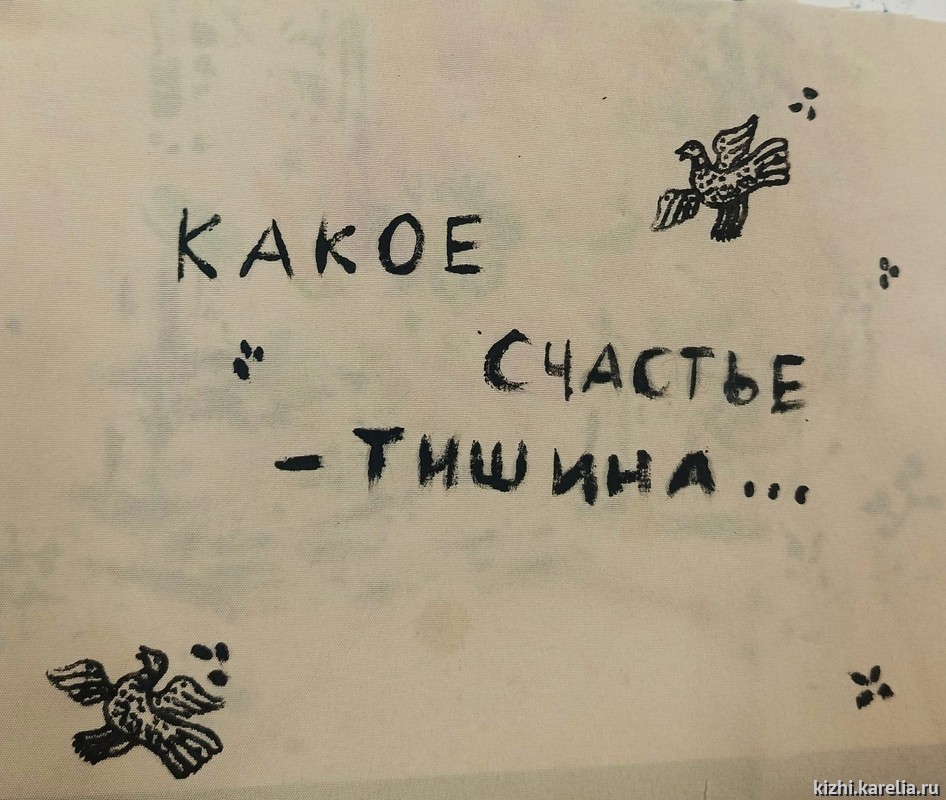 КАКОЕ
СЧАСТЬЕ
– ТИШИНА...
kizhi.karelia.ru